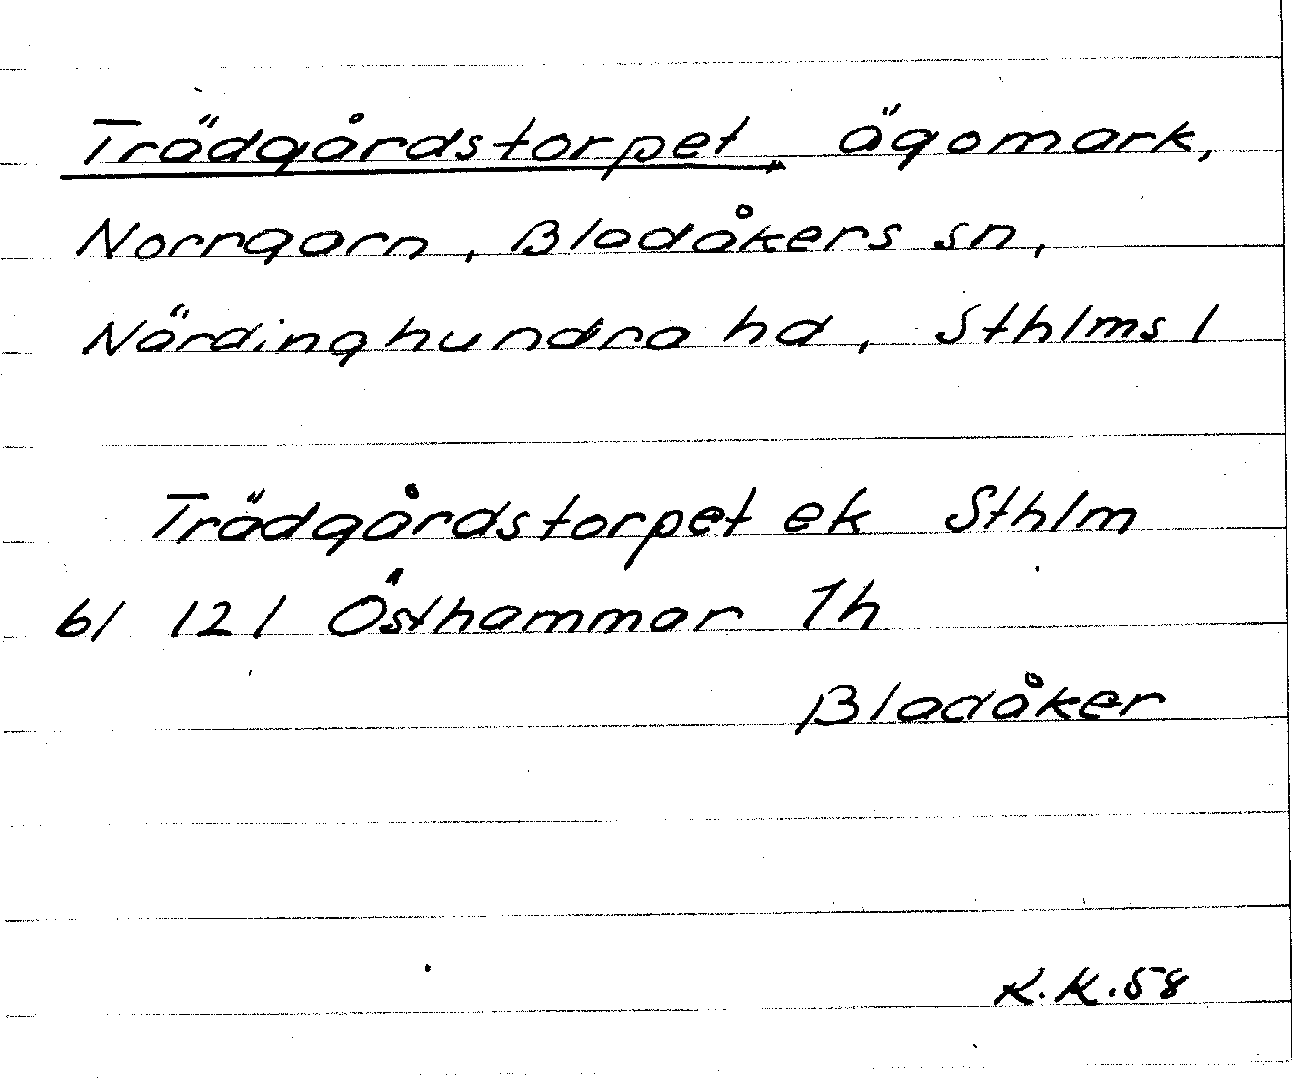 Trädgårdstorpet, ägomark,
Norrgarn, Bladåkers sn,
Närdinghundra hd, Sthlms l
Trädgårdstorpet ek Sthlm
bl 121 Östhammar Th
Bladåker
K.K.58